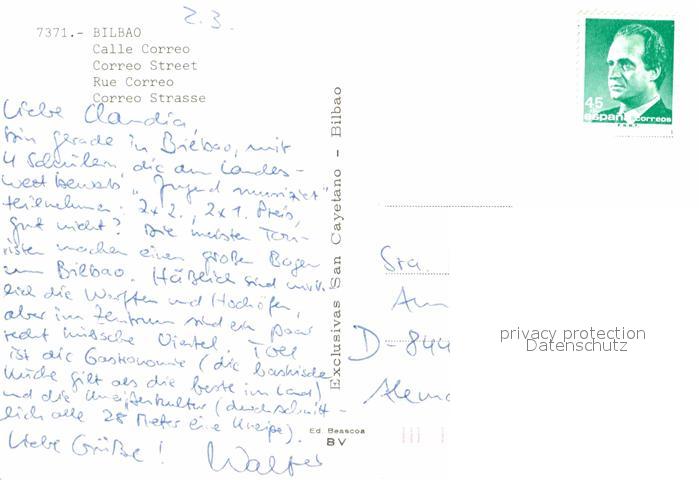 2.3.
7371.- BILBAO
Calle Correo
Correo Street
Rue Correo
Correo Strasse
Liebe Claudia
bin gerade in Bilbao, mit
4 Schülern, die am Landes-
wettbewerb "Jugend musiziert"
teilnehmen. 2x 2., 2x 1. Preis,
gut nicht? Die meisten Tou-
risten machen einen großen Bogen
um Bilbao. Häßlich sind wirk-
lich die Werften und Hochöfen,
aber im Zentrum sind ein paar
recht hübsche Viertel. Toll
ist die Gastronomie (die baskische
Küche gilt als die beste im Land)
und die Kneipenkultur (durchschnitt-
lich alle 28 Meter eine Kneipe).
Liebe Grüße! Walter
Exclusivas San Cayetano - Bilbao
Ed. Beascoa
BV
45
españa correos
Sra.
D-844
Alema
privacy protection
Datenschutz